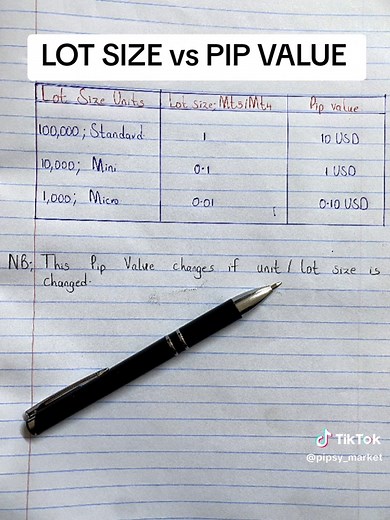 LOT SIZE vs PIP VALUE
Lot Size Units Lot size; Mt5/Mt4 Pip value
100,000; Standard 1 10 USD
10,000; Mini 0.1 1 USD
1,000; Micro 0.01 0.10 USD
NB; This Pip Value changes if unit / lot size is
changed.
TikTok
@pipsy_market